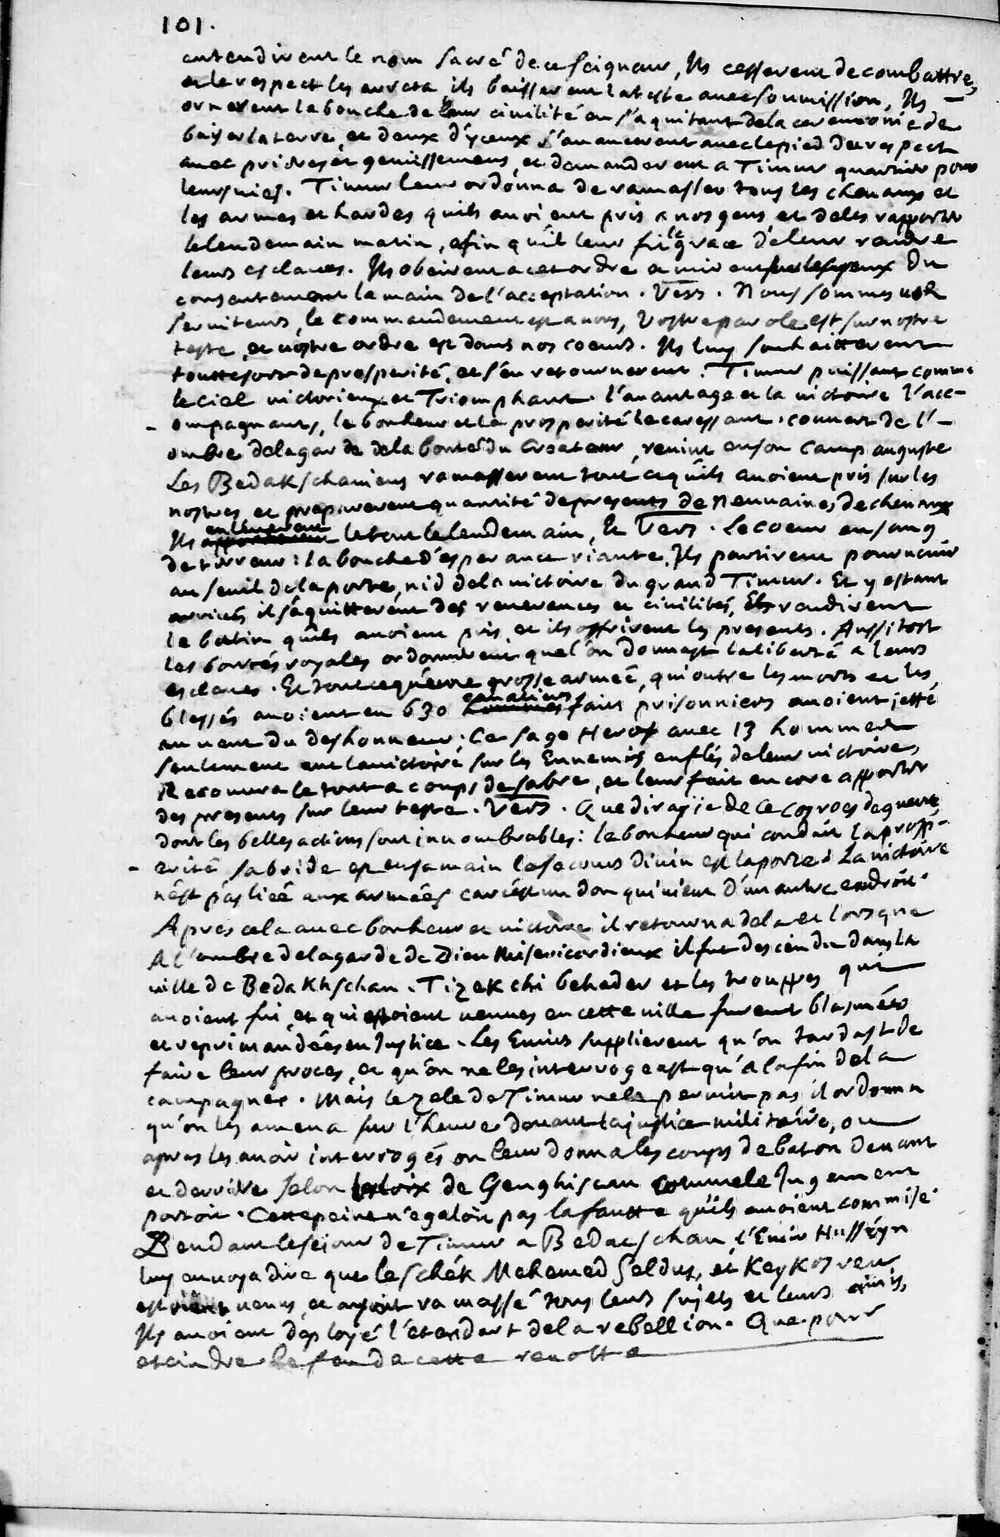 101.
entendirent le nom sacré de ce seigneur, Ils cesserent de combattre,
et le respect les arresta ils baisserent la teste avec soumission, Ils
ornerent la bouche de leur civilité en s'aquitant de la ceremonie de
baiser la terre, et deux d'yceux s'avancerent avec le pied de respect
avec prieres et gemissemens, et demanderent a Timur quartier pour
leurs vies. Timur leur ordonna de ramasser tous les chevaux et
les armes et hardes quils avoient pris a nos gens et de les rapporter
le lendemain matin, afin qu'il leur fit la grace de leur rendre
leurs esclaves. Ils obeirent a cet ordre et mirent sur les yeux du
consentement la main de l'acceptation. Vers. Nous sommes vos
serviteurs, le commandement est a vous, Vostre parole est sur nostre
teste, et vostre ordre est dans nos coeurs. Ils luy souhaitterent
toutte sorte de prosperité, et s'en retournerent. Timur puissant comme
le ciel victorieux et Triomphant. l'avantage et la victoire l'acc-
ompagnants, le bonheur et la prosperité le caressant. couvert de l'-
ombre de la garde de la bonté du Createur, revint en son camp auguste
Les Bedakschaniens ramasserent tout ce qu'ils avoient pris sur les
nostres et preparerent quantité de presents de Neuvaines de chevaux
Ils enleverent le tout le lendemain, Et Vers. Le coeur en sang
de terreur: la bouche d'esperance riante. Ils partirent pour venir
au seuil de la porte, nid de la victoire du grand Timur. Et y estant
arrivés, il s'aquitterent des reverences et civilités, Els rendirent
le butin qu'ils avoient pris, et ils offrirent les presents. Aussitost
les bontés royales ordonnerent que l'on donnast la liberté a leurs
esclaves. Et tout ce qu'une grosse armeé, qui outre les morts et les
blessés avoient eu 630 cavaliers faits prisonniers avoient jetté
au vent du deshonneur; Ce sage Heros avec 13 hommes
seulement eut la victoire sur les Ennemis enflés de leur victoire,
Recouvra le tout a coups de sabre, et leur fait encore apporter
des presents sur leur teste. Vers. Que dirayie de ce cosroes de guerre
dont les belles actions sont innombrables: le bonheur qui conduit la prosp-
erité sa bride est en sa main le secours divin est la porte. La victoire
n'est pas lieé aux armeés car c'est un don qui vient d'un autre endroit.
Apres cela avec bonheur et victoire il retourna de la et lorsque
A l'ombre de la garde de Dieu Misericordieux il fut descendu dans la
ville de Bedakhschan. Tizekchi behader et les trouppes qui
avoient fui, et qui estoient venues en cette ville furent blasméés
et reprimandées en Justice. Les Emirs supplierent qu'on tardast de
faire leur proces, et qu'on ne les interrogeast qu'a la fin de la
campagnes. Mais le zele de Timur ne le permit pas il ordonna
qu'on les amena sur l'heure devant la justice militaire, ou
apres les avoir interrogés on leur donna les coups de baton devant
et derriere selon les loix de Genghiscan comme le Jugement
portoit. Cette peine n'egaloit pas la fautte qu'ils avoient commise.
Pendant le sejour de Timur a Bedacschan, l'Emir Hussëyn
luy envoya dire que le schék Mehemed Selduz, et Keykosreu
estoient venus, et ayoit ramassé tous leurs sujets et leurs amis,
Ils avoient deployé l'etendart de la rebellion. Que pour
eteindre le feu de cette revolte